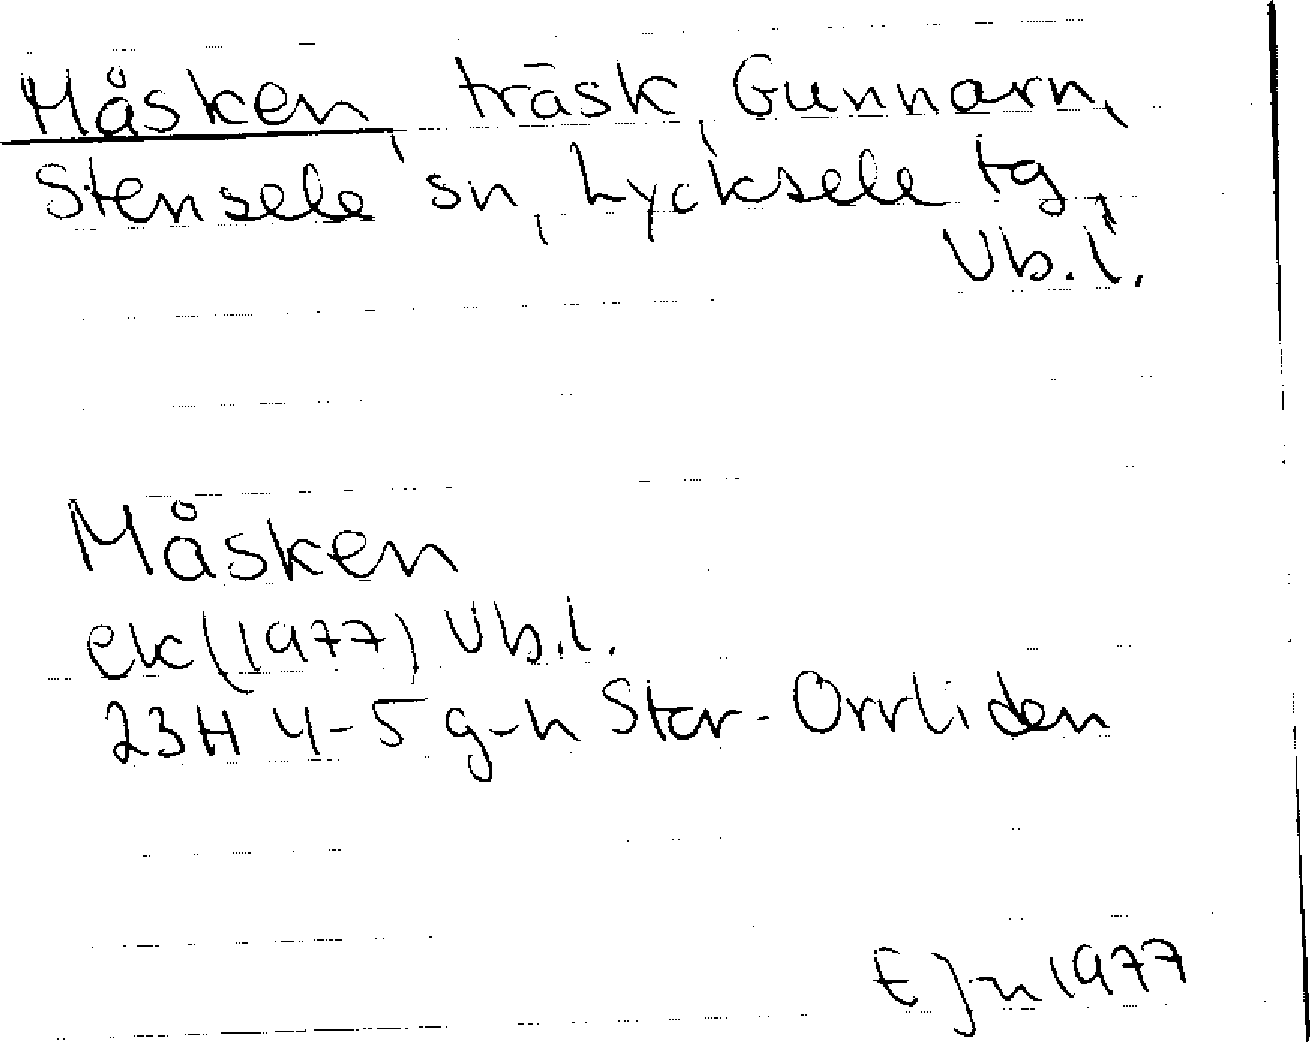 Måsken, träsk, Gunnarn,
Stensele sn, Lycksele tg,
Vb.l.
Måsken
ek (1977) Vb.l.
23H 4-5 g-h Stor-Orrliden
E J-n 1977